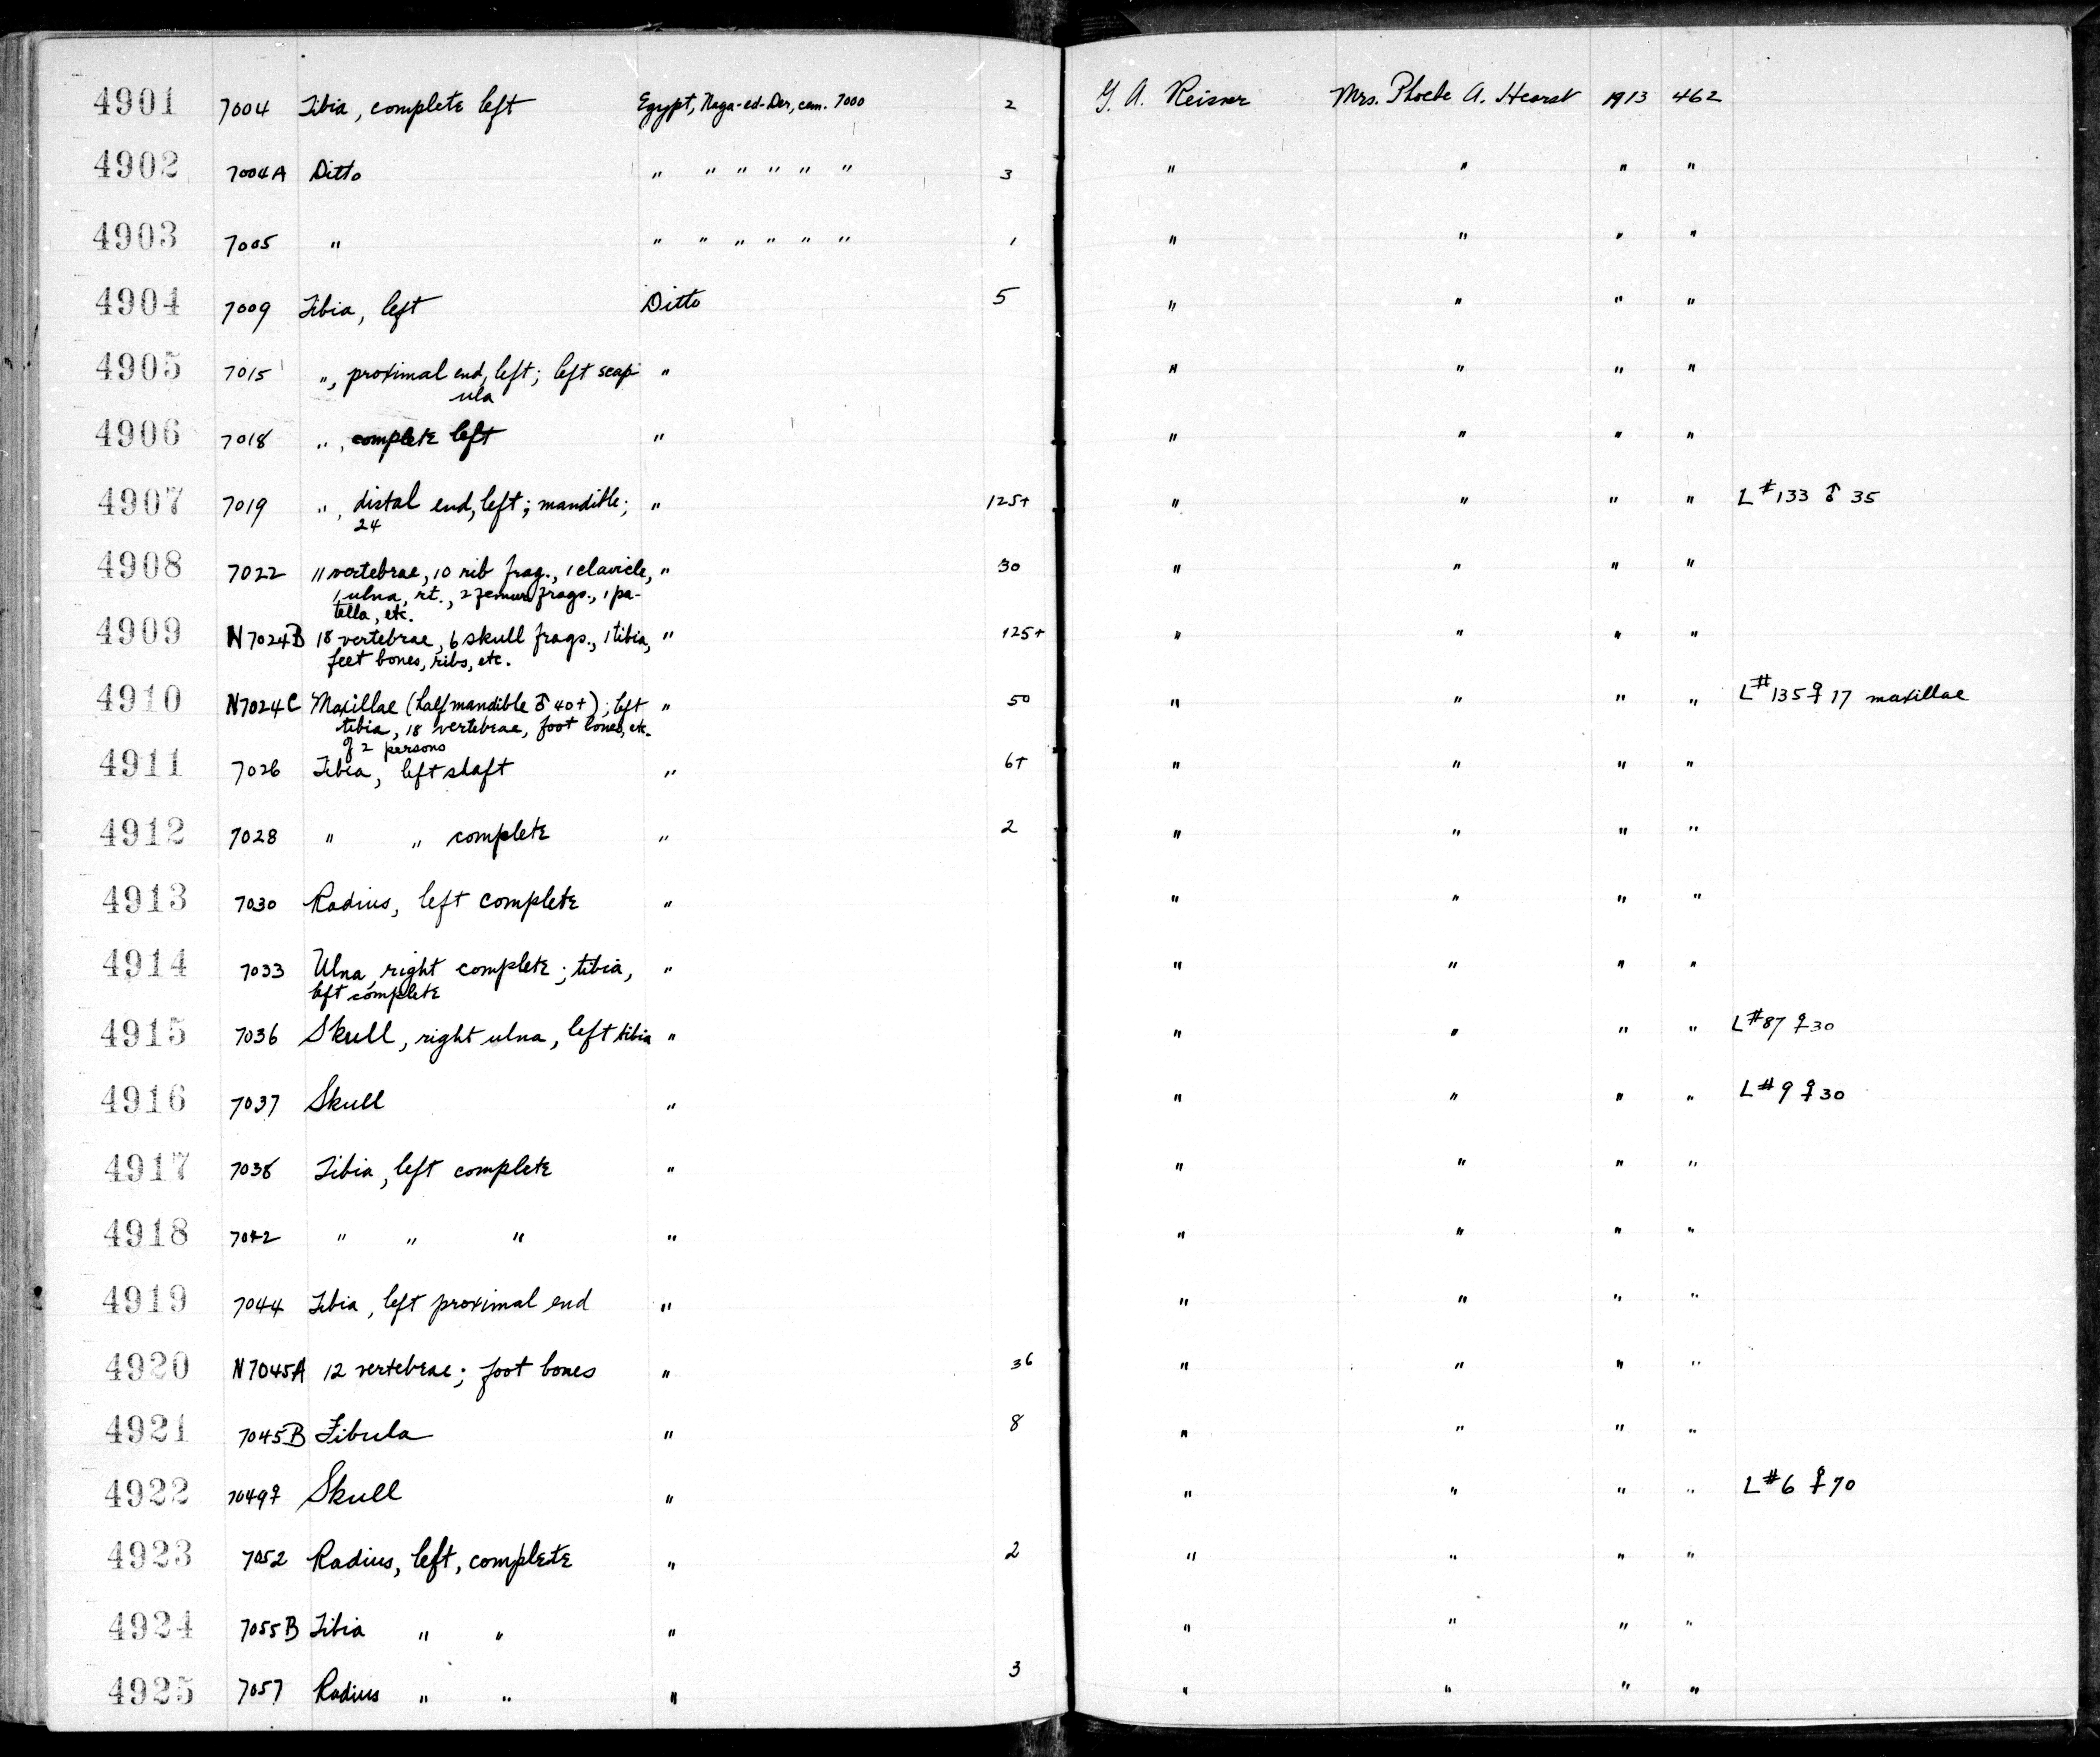 4901 7004 Tibia, complete left Egypt, Naga-ed-Der, cem. 7000 2 G. A. Reisner Mrs. Phoebe A. Hearst 1913 462
4902 7004A Ditto " " " " " " 3 " " " "
4903 7005 " " " " " " " 1 " " " "
4904 7009 Tibia, left Ditto 5 " " " "
4905 7015 ", proximal end, left; left scap- " " " " "
ula
4906 7018 ", complete left " " " " "
4907 7019 ", distal end, left; mandible; " 125+ " " " " L#133 ♂ 35
24
4908 7022 11 vertebrae, 10 rib frag., 1 clavicle, " 30 " " " "
1 ulna, rt., 2 femur frags., 1 pa-
tella, etc.
4909 N7024B 18 vertebrae, 6 skull frags., 1 tibia, " 125+ " " " "
feet bones, ribs, etc.
4910 N7024C Maxillae (half mandible ♂ 40+); left " 50 " " " " L#135 ♀ 17 maxillae
tibia, 18 vertebrae, foot bones, etc.
of 2 persons
4911 7026 Tibia, left shaft " 6+ " " " "
4912 7028 " " complete " 2 " " " "
4913 7030 Radius, left complete " " " " "
4914 7033 Ulna, right complete; tibia, " " " " "
left complete
4915 7036 Skull, right ulna, left tibia " " " " " L#87 ♀ 30
4916 7037 Skull " " " " " L#9 ♀ 30
4917 7038 Tibia, left complete " " " " "
4918 7042 " " " " " " " "
4919 7044 Tibia, left proximal end " " " " "
4920 N7045A 12 vertebrae; foot bones " 36 " " " "
4921 7045B Fibula " 8 " " " "
4922 7049♀ Skull " " " " " L#6 ♀ 70
4923 7052 Radius, left, complete " 2 " " " "
4924 7055B Tibia " " " " " " "
4925 7057 Radius " " " 3 " " " "